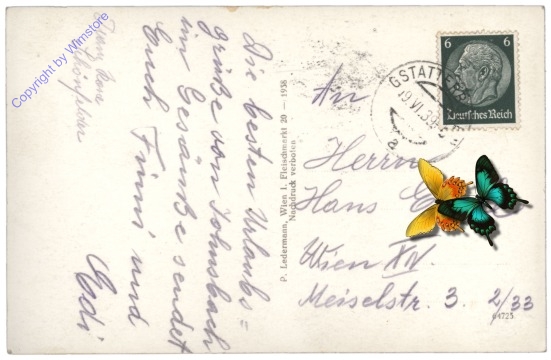 Die besten Urlaubs=
grüße von Johnsbach
im Gesäuße sendet
Euch Finni und
Edi
P. Ledermann, Wien I. Fleischmarkt 20 – 1938
Nachdruck verboten
6 6
Deutsches Reich
GSTATT
19.VI.39
a
An
Herrn
Hans
Wien XIV.
Meiselstr. 3. 2/33
64723
Copyright by Wimstore